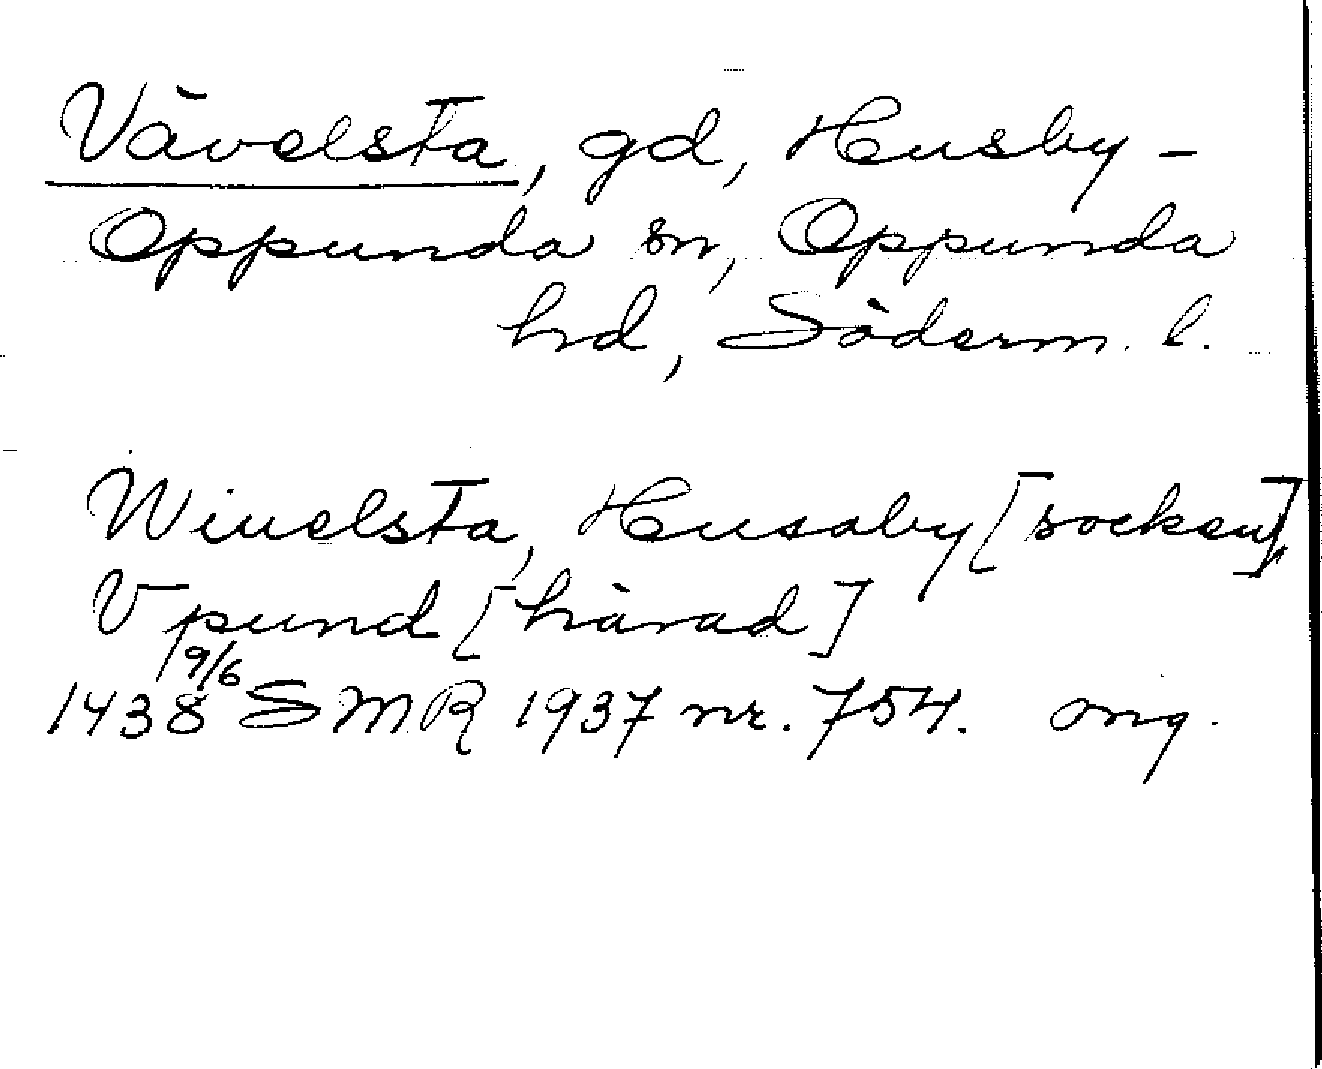 Vävelsta, gd, Husby-
Oppunda sn, Oppunda
hd, Söderm. l.
Wiuelsta, Husaby [socken]
Vpund [härad]
1438 9/6 SMR 1937 nr. 754. orig.